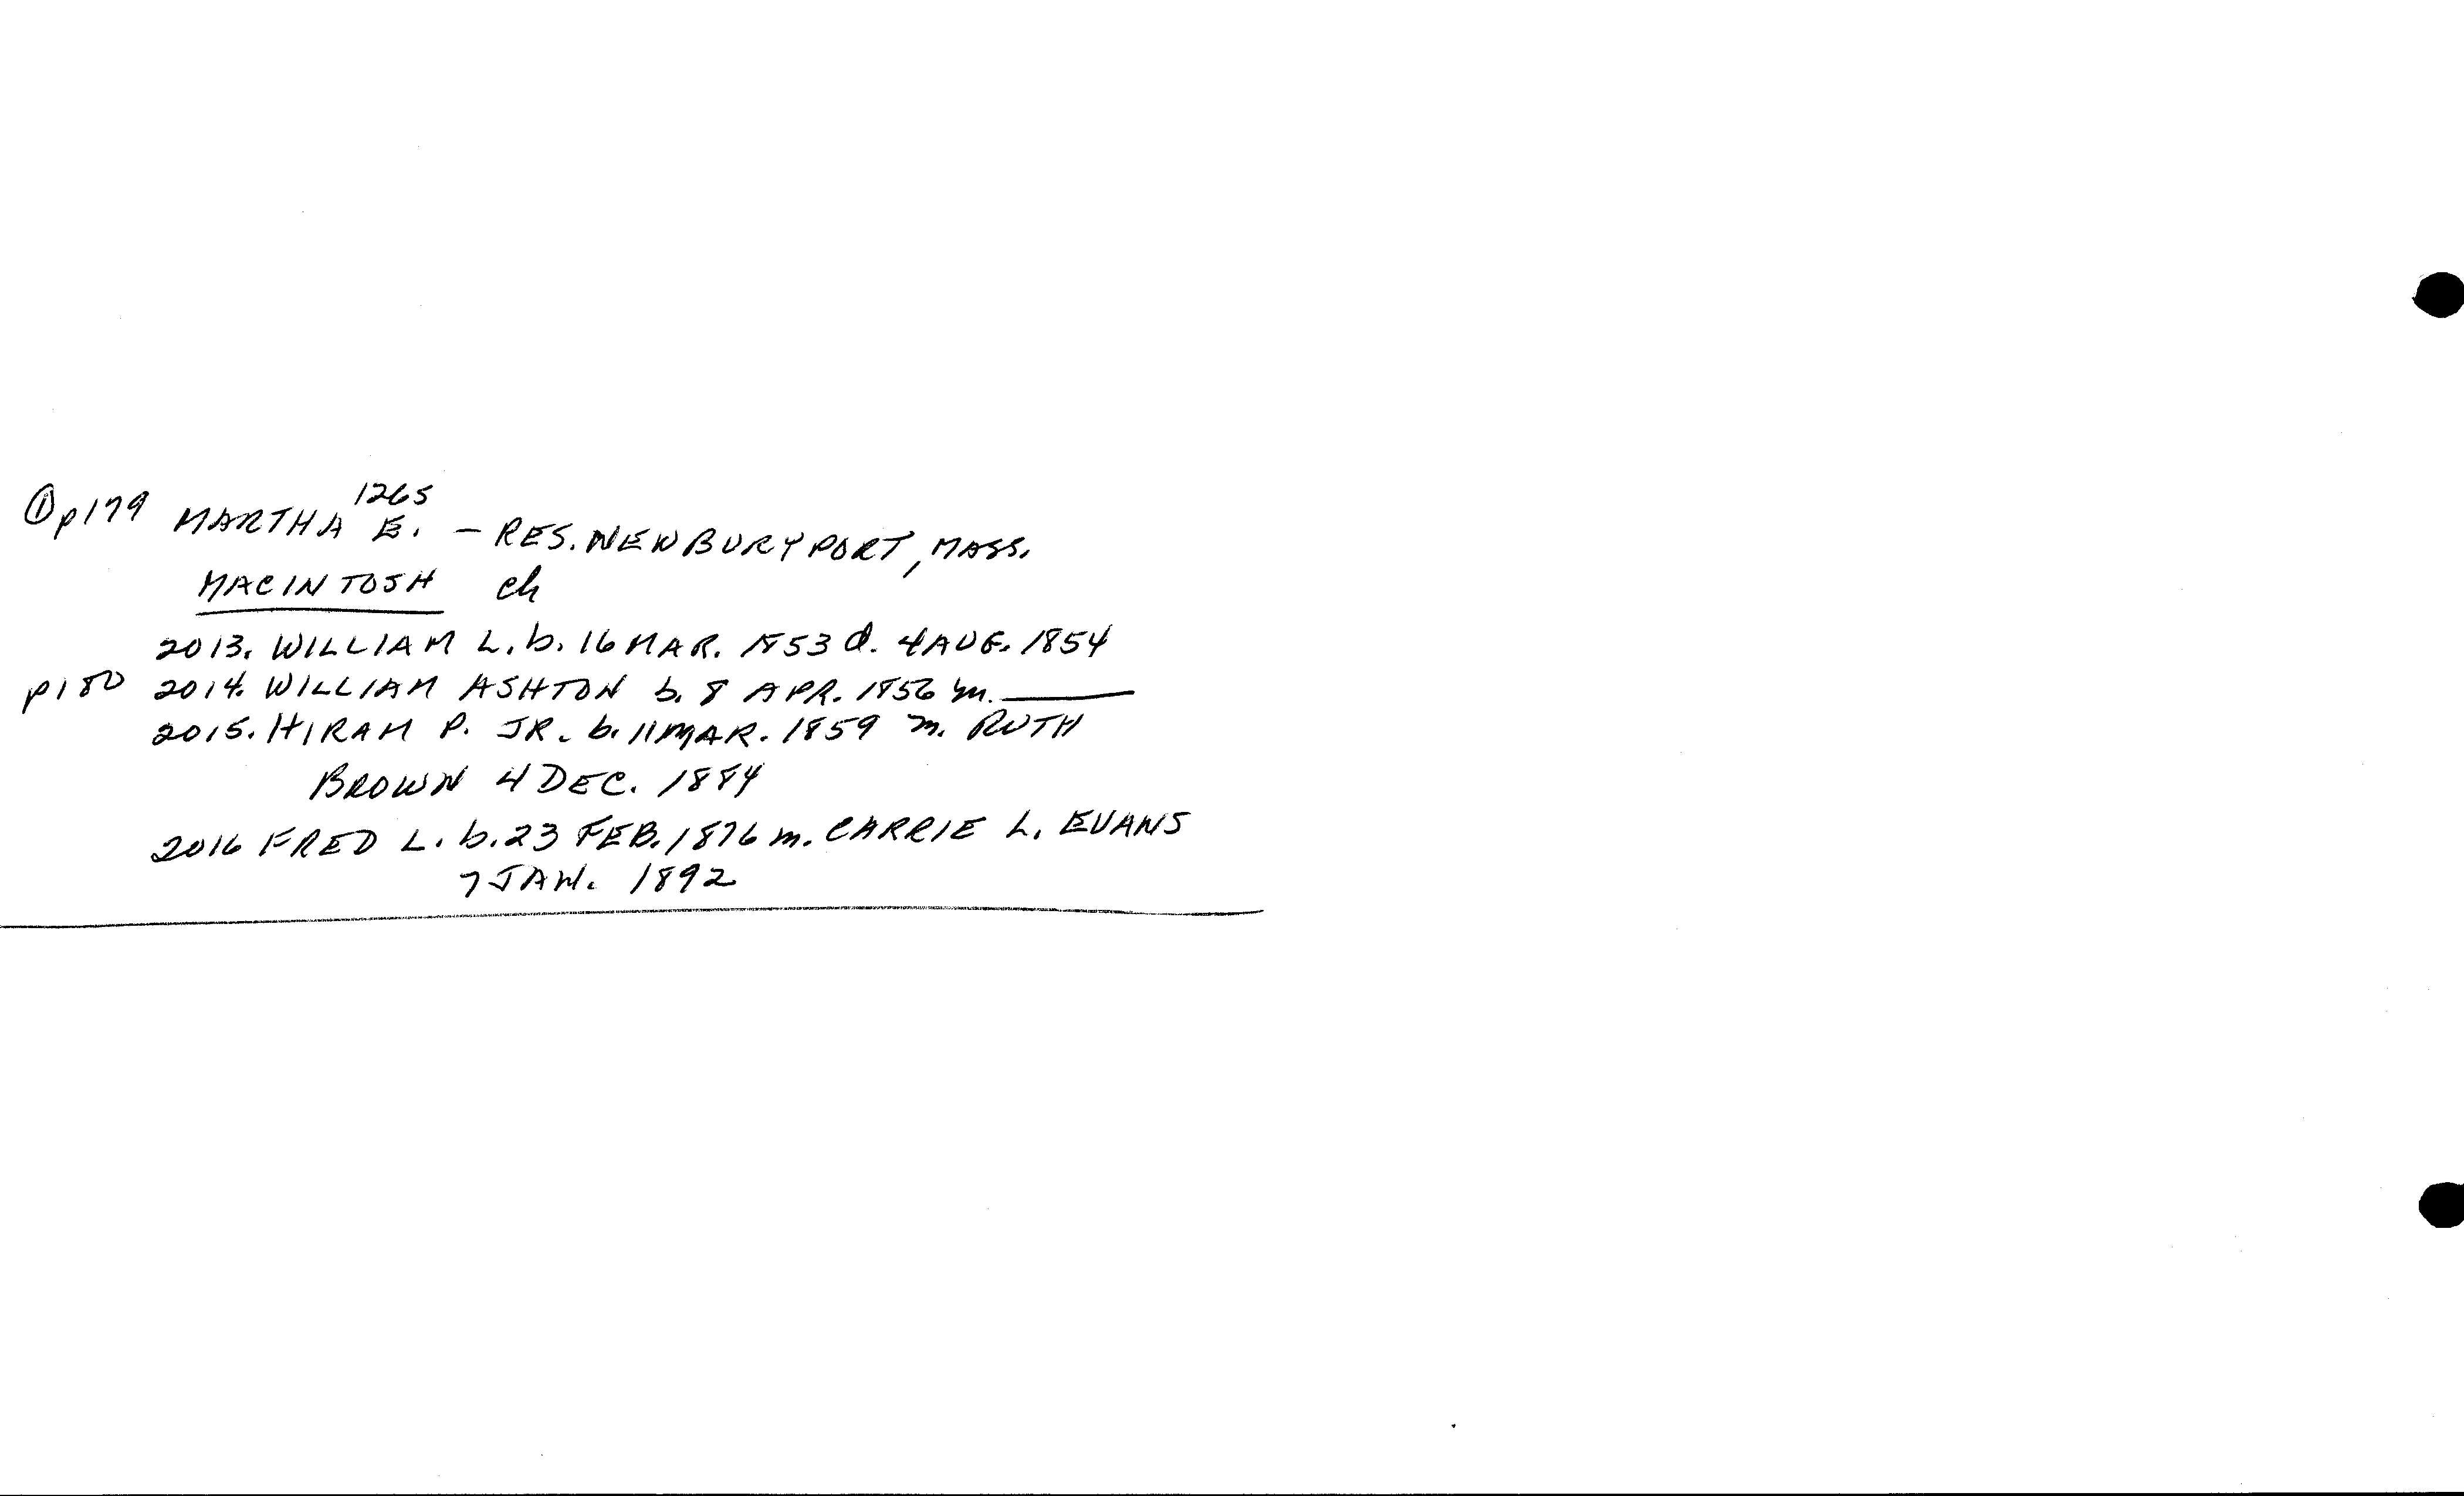 ① p179 MARTHA E. 1265 — RES. NEWBURYPORT, MASS.
MACINTOSH ch
2013. WILLIAM L. b. 16 MAR. 1853 d. 4 AUG. 1854
p180 2014. WILLIAM ASHTON b. 8 APR. 1856 m. ______
2015. HIRAM P. JR. b. 11 MAR. 1859 m. RUTH
BROWN 4 DEC. 1884
2016 FRED L. b. 23 FEB. 1876 m. CARRIE L. EVANS
7 JAN. 1892